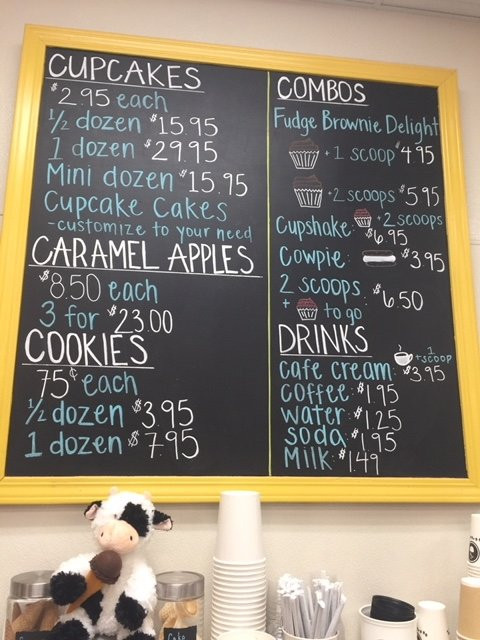 CUPCAKES
$2.95 each
1/2 dozen $15.95
1 dozen $29.95
Mini dozen $15.95
Cupcake Cakes
-customize to your need
CARAMEL APPLES
$8.50 each
3 for $23.00
COOKIES
75¢ each
1/2 dozen $3.95
1 dozen $7.95
COMBOS
Fudge Brownie Delight
+1 scoop $4.95
+2 scoops $5.95
Cupshake: +2 scoops
$6.95
Cowpie: $3.95
2 scoops
+ to go : $6.50
DRINKS
cafe cream: +1 scoop $3.95
coffee: $1.95
water: $1.25
soda: $1.95
Milk: $1.49
Cake